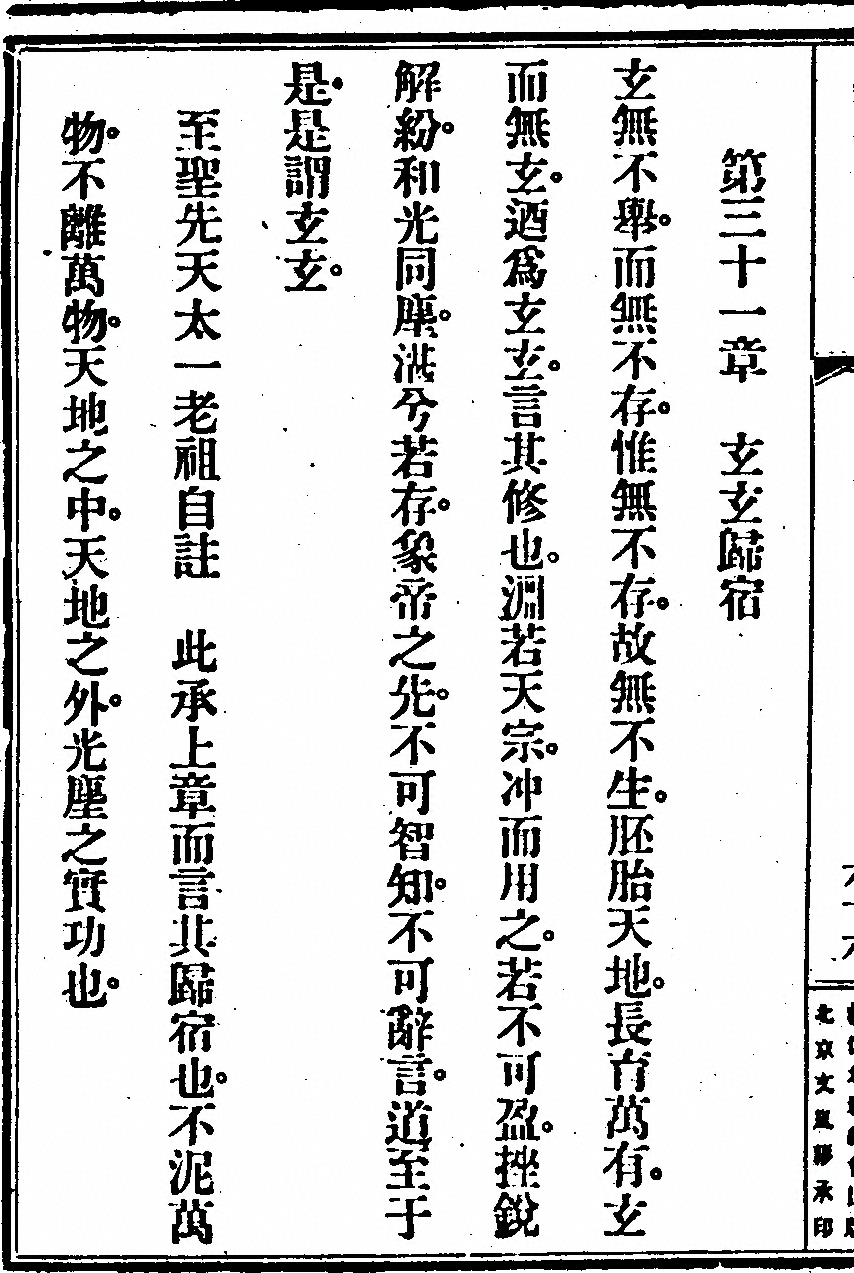 第三十一章　玄玄歸宿
玄無不舉。而無不存。惟無不存。故無不生。胚胎天地。長育萬有。玄
而無玄。迺爲玄玄。言其修也。淵若天宗。冲而用之。若不可盈。挫銳
解紛。和光同塵。湛兮若存。象帝之先。不可智知。不可辭言。道至于
是。是謂玄玄。
至聖先天太一老祖自註　此承上章而言其歸宿也。不泥萬
物。不離萬物。天地之中。天地之外。光塵之實功也。
北京文嵐簃承印